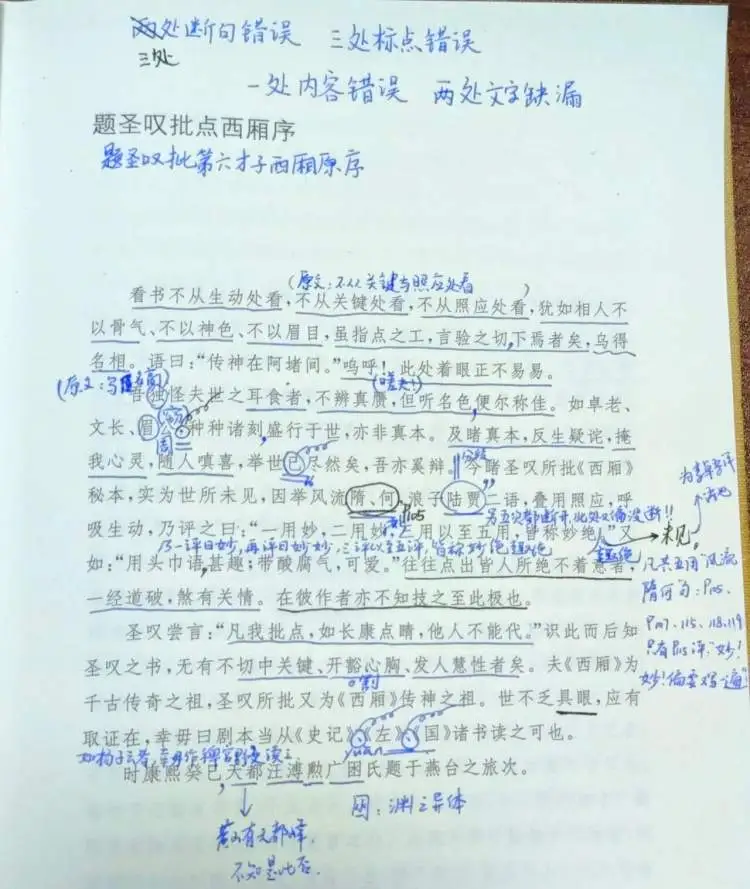 两处断句错误 三处标点错误
三处
一处内容错误 两处文字缺漏
题圣叹批点西厢序
题圣叹批第六才子西厢原序
(原文:不从关键与照应处看)
看书不从生动处看,不从关键处看,不从照应处看,犹如相人不
以骨气、不以神色、不以眉目,虽指点之工,言验之切下焉者矣,乌得
名相。语曰:“传神在阿堵间。”呜呼!此处着眼正不易易。
吾独怪夫世之耳食者,不辨真赝,但听名色便尔称佳。如卓老、
文长、眉公种种诸刻盛行于世,亦非真本。及睹真本,反生疑诧,掩
我心灵,随人嗔喜,举世已尽然矣,吾亦奚辩。今睹圣叹所批《西厢》
秘本,实为世所未见,因举风流隋、何,浪子陆贾二语,叠用照应,呼
吸生动,乃评之曰:“一用妙,二用妙,三用以至五用,皆称妙绝”又
乃一评曰妙,再评曰妙妙,三评以至五评,皆称妙绝趣绝
如:“用头巾语,甚趣;带酸腐气,可爱。”往往点出皆人所绝不着意者,
一经道破,煞有关情。在彼作者亦不知技之至此极也。
圣叹尝言:“凡我批点,如长康点睛,他人不能代。”识此而后知
圣叹之书,无有不切中关键、开豁心胸、发人慧性者矣。夫《西厢》为
千古传奇之祖,圣叹所批又为《西厢》传神之祖。世不乏具眼,应有
取证在,幸毋曰剧本当从《史记》《左》《国》诸书读之可也。
时康熙癸巳天都汪溥勲广囦氏题于燕台之旅次。
囦:渊之异体
黄山有天都峰
不知是此否.
未见
P105
凡共五用“风流
隋何”句:P105、
P107、115、118、119
只有P115评“妙!